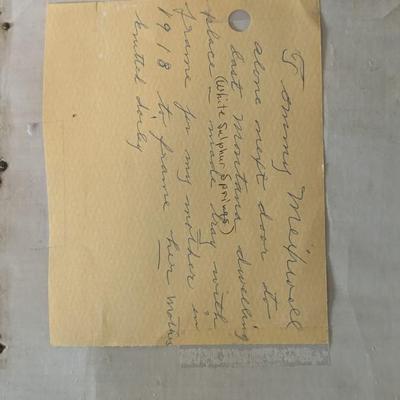 Tommy
alone next door to
last Montana dwelling
(White Sulphur Springs)
place - made tray with
frame for my mother in
1918 to frame her mother
knitted doily